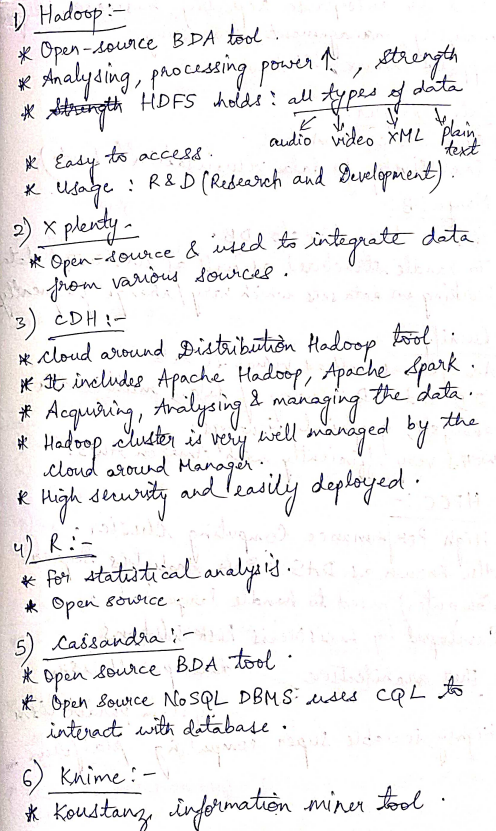 1) Hadoop :-
* Open-source BDA tool.
* Analysing, processing power ↑, strength
* HDFS holds : all types of data
audio video XML plain text
* Easy to access.
* Usage : R&D (Research and Development).
2) X plenty -
* Open-source & used to integrate data
from various sources.
3) CDH :-
* Cloud around Distribution Hadoop tool.
* It includes Apache Hadoop, Apache Spark.
* Acquiring, Analysing & managing the data.
* Hadoop cluster is very well managed by the
cloud around Manager.
* High security and easily deployed.
4) R :-
* For statistical analysis.
* Open source.
5) Cassandra :-
* Open source BDA tool.
* Open source NoSQL DBMS uses CQL to
interact with database.
6) Knime :-
* Koustanz information miner tool.